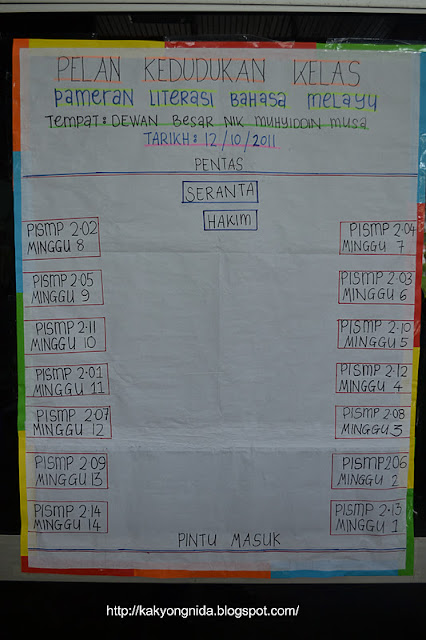 PELAN KEDUDUKAN KELAS
PAMERAN LITERASI BAHASA MELAYU
TEMPAT: DEWAN BESAR NIK MUHYIDDIN MUSA
TARIKH: 12/10/2011
PENTAS
SERANTA
HAKIM
PISMP 2.02
MINGGU 8
PISMP 2.05
MINGGU 9
PISMP 2.11
MINGGU 10
PISMP 2.01
MINGGU 11
PISMP 2.07
MINGGU 12
PISMP 2.09
MINGGU 13
PISMP 2.14
MINGGU 14
PISMP 2.04
MINGGU 7
PISMP 2.03
MINGGU 6
PISMP 2.10
MINGGU 5
PISMP 2.12
MINGGU 4
PISMP 2.08
MINGGU 3
PISMP 206
MINGGU 2
PISMP 2.13
MINGGU 1
PINTU MASUK
http://kakyongnida.blogspot.com/